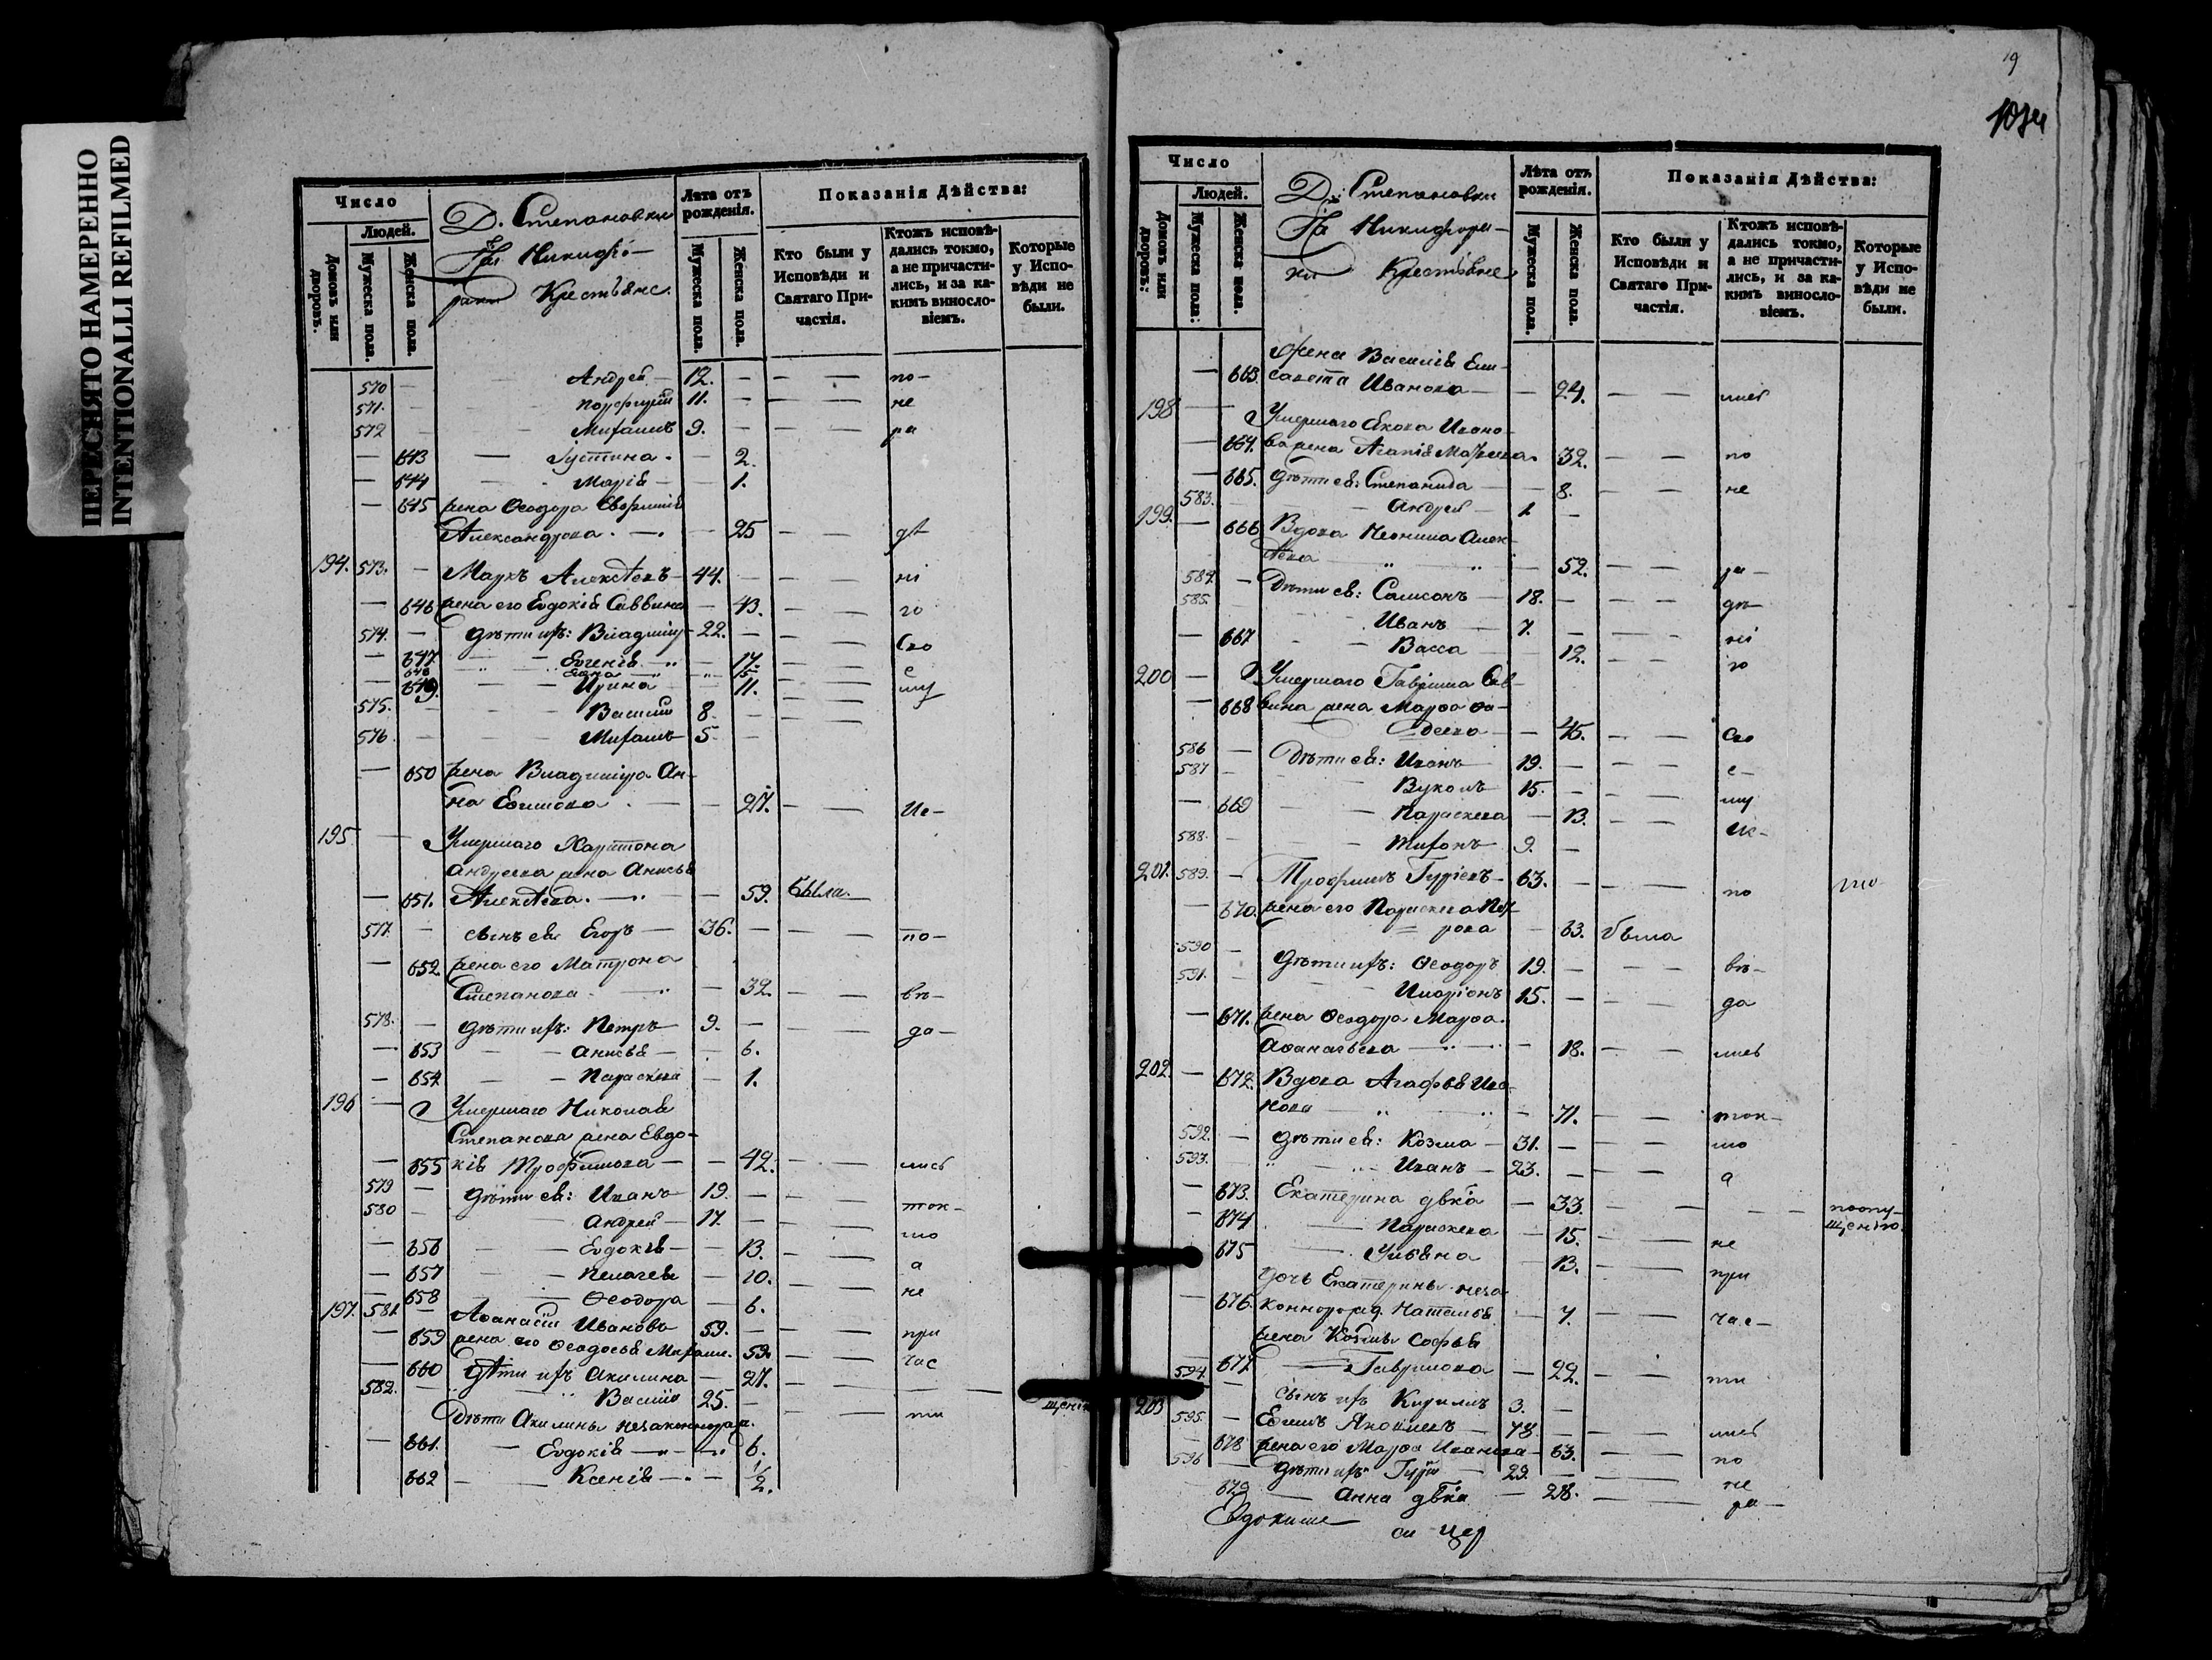 ПЕРЕСНЯТО НАМЕРЕННО
INTENTIONALLI REFILMED
Число
Людей.
Домовъ или дворовъ.
Мужеска пола.
Женска пола.
Д. Степановки
На Никифо-
ровки Крестьяне.
Лѣта отъ рожденія.
Мужеска пола.
Женска пола.
Показанія Дѣйства:
Кто были у Исповѣди и Святаго Причастія.
Ктожъ исповѣдались токмо, а не причастились, и за какимъ винословіемъ.
Которые у Исповѣди не были.
570 — Андрей — 12. — — — по-
571. — Порфирій 11. — — — не
572 — Михаилъ 9. — — — ра
— 643 — Іустина. — 2.
— 644 — Марія — 1.
— 645 жена Ѳеодора Евфимія
Александрова. — 25 — — дѣ
194. 573. — Маркъ Алексѣевъ — 44. — — — ні
— 646 жена его Евдокія Саввина — 43. — — го
574. — дѣти ихъ: Владиміръ 22. — — — Сво
— 647 — Евгенія — 17. — —
648 15
— 649. — Ирина — 11. — — му
575. — Василій 8. — — —
576. — Михаилъ 5. —
— 650 жена Владиміра Ан-
на Ефимова. — 27. — — Ис-
195. — Умершаго Харитона
Андреева жена Анисья
— 651. Алексѣева. — 59. была
577. — сынъ ея Егоръ — 36. — — — по-
— 652. жена его Матрона
Степанова. — 32. — — вѣ-
578. — дѣти ихъ: Петръ 9. — — — да-
— 653 — Анисья — 6.
— 654 — Параскева — 1.
196 — Умершаго Николая
Степанова жена Евдо-
— 655 кія Трофимова — 42. — — лись
579 — дѣти ея: Иванъ 19. — — — ток-
580 — Андрей — 17. — — — мо
— 656 — Евдокія — 13. — — а
— 657 — Пелагея — 10. — — не
— 658 — Ѳеодора — 6.
197. 581. — Аѳанасій Ивановъ 59. — — — при
— 659 жена его Ѳеодосья Михаил. 59. — — час
— 660 Дѣти ихъ Акилина — 27. — — —
582. — Василій 25. — — — ти
Дѣти Акилины незаконнорож.
— 661. — Евдокія — 6.
662 — Ксенія — 1/2.
щенію
19
Число
Людей.
Домовъ или дворовъ:
Мужеска пола:
Женска пола.
Д. Степановки
На Никифоро-
ки Крестьяне
Лѣта отъ рожденія.
Мужеска пола.
Женска пола.
Показанія Дѣйства:
Кто были у Исповѣди и Святаго Причастія.
Ктожъ исповѣдались токмо, а не причастились, и за какимъ винословіемъ.
Которые у Исповѣди не были.
Жена Василія Ели-
— 663. савета Иванова — 24. — — лись
198 — Умершаго Якова Ивано-
— 664. ва жена Агапія — 32. — — по
— 665. дѣти ея: Степанида — 8. — — не
583. — Андрей — 1 —
199. — 666 Вдова Неонила Алек-
сѣева — 52. — — ра-
584. — Дѣти ея: Самсонъ 18. — — — дѣ-
585. — Иванъ 7. — — — ні
— 667 — Васса — 12. — — го
200 — Умершаго Гавріила Сав-
— 668 вина жена Марѳа Ѳа-
деева — 45. — — Сво
586 — Дѣти ея: Иванъ 19. — — — е-
587 — Вуколъ 15. — — — му
— 669 — Параскева — 13. — — Ис-
588. — Тихонъ 9. —
201. 589. — Трофимъ Гурьевъ — 63. — — — по
— 670. жена его Параскева Пет-
рова — 63. была
590 — Дѣти ихъ: Ѳеодоръ 19. — — — вѣ-
591. — Иларіонъ 15. — — — да
— 671. жена Ѳеодора Марѳа
Аѳанасьева — 18. — — лись
202. — 672. Вдова Агафья Ива-
нова — 71. — — ток-
592. — дѣти ея: Козма — 31. — — — мо
593. — Иванъ — 23. — — — а
— 673. Екатерина двка — 33. — — — поопу-
щенію.
— 674 — Параскева — 15. — — не
675 — Ульяна — 13. — — при
дочь Екатерины неза-
— 676. коннорожд. Наталья — 7. — — час-
жена Козмы Софья
— 677 — Гаврилова — 22. — — ти
594. — сынъ ихъ Кирилъ 3. —
203 595. — Ефимъ Яковлевъ — 78. — — — лись
— 678 жена его Марѳа Иванова — 63. — — по
596 — Дѣти ихъ Гурій 29. — — — не
679 — Анна двка — 28. — — ра-